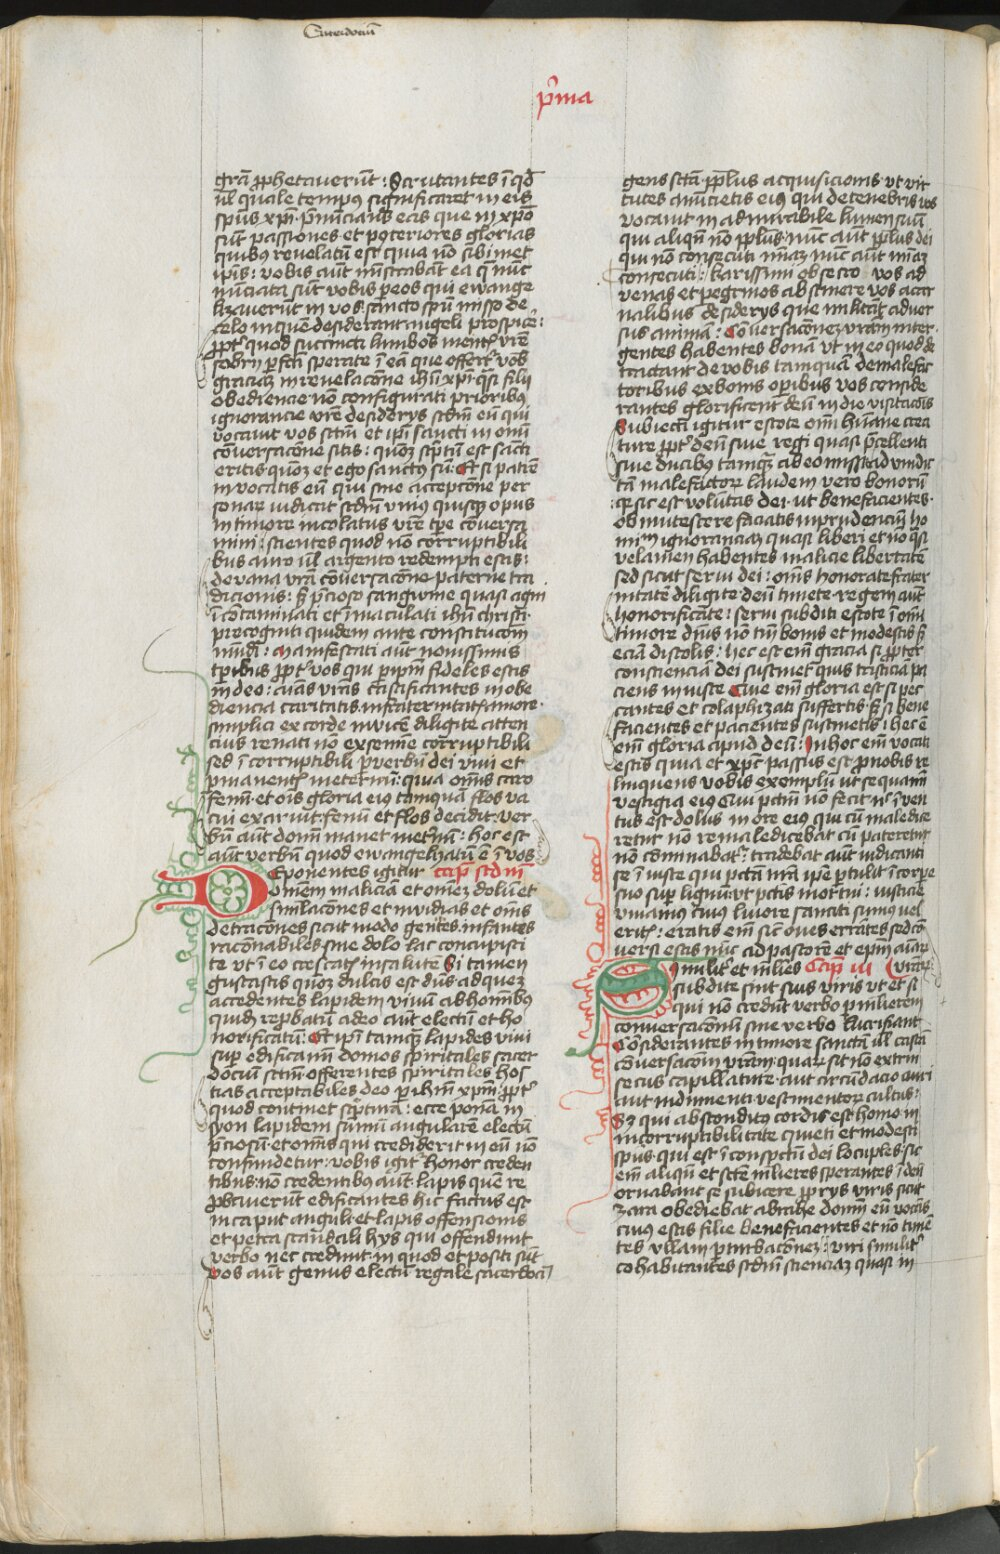 Sacerdociu᷑
p̾ma
gr̄a ꝓphetaver̄t : Scrutantes ī qd̄
ul̄ quale tempus significaret in eis
sp̄us xp̄i · p̄nūcians eas que in xp̄o
sūt passiōes et posteriores glorias
quibꝰ revelatū est quia nō sibi met
ip̄is : vobis aūt mīstrabāt ea q̄ nūc
nūciata sūt vobis ꝑ eos qui ewange
lizaverūt in vos sancto sp̄u misso de
celo in quē desiderant angeli prospicē :
ꝓpt̾ quod succincti lumbos mentꝭ vr̄e
sobrij ꝑfcā sperate ī eā que offert̾ vob̄
graciā in revelacōne ih̄u xp̄i q̄si filij
obediencie nō configurati prioribus
ignorancie vr̄e desiderijs scd̄m eū qui
vocavit vos sctm̄ et ip̄i sancti in om̄i
cōversacōne sitis : quoniā scptū est sācti
eritis quoniā et ego sanctus sū · Et si patrē
invocatis eū qui sine accepcōne per
sonarꝝ iudicat scdm̄ uniꝰ cuiusqꝫ opus
in timore incolatus vr̄e tꝑe cōversa
mini : scientes quod nō corruptibili
bus auro ul̄ argento redempti estis :
de vana vr̄a cōversacōne paterne tra
dicionis : sꝫ p̄cioso sangwine quasi agni
īcōtaminati et īmaculati ih̄u christi ·
precogniti quidem ante constitucōm̄
mūdi : Manifestati aūt novissimis
tꝑibus ꝓpt̾ vos qui ꝑ ip̄m fideles estis
in deo : aīas vr̄as castificantes in obe
diencia caritatis in fraternitatꝭ amore ·
simplici ex corde invicē diligite atten
cius renati nō ex semīe corruptibili
sed ī corruptibili ꝑ verbū dei vivi et
ꝑmanentꝭ in eternū : quia om̄is caro
fenū et oīs gloria eiꝰ tamquā flos fe
ni exaruit · fenū et flos decidit · ver
bū aūt domī manet in et̾nū : hoc est
aūt verbū quod ewangelizatū ē ī vos
Deponentes igitur cap̄ scdm̄
omnem maliciā et omnē dolū et
simulacōnes et invidias et om̄s
detracōnes sicut modo geniti infantes
racōnabiles sine dolo lac concupisci
te ut ī eo crescatꝭ in salutē Si tamen
gustastis quoniā dulcis est dūs ad quē
accedentes lapidem vivū ab homībus
quidē reprobatū a deo aūt electū et ho
norificatū : Et ip̄i tamqꝫ lapides vivi
suꝑ edificamī domos sp̄irituales sacer
dociū sctm̄ offerentes sp̄irituales hos
tias acceptabiles deo ꝑ ih̄m xp̄m : ꝓpt̾
quod continet scptura : ecce ponā in
syon lapidem sūmū angularē electū
p̄ciosū et om̄is qui crediderit in eū nō
confundetur : vobis igit̾ honor creden
tibus nō credentibus aūt lapis quē re
probaverūt edificantes hic factus est
in caput anguli et lapis offensionis
et petra scandali hijs qui offendunt
verbo nec credunt in quod et positi sūt
vos aūt genus electū regale sacerdociū
gens sctā · pplus acquisicionis ut vir
tutes annūcietis eiꝰ qui de tenebris vos
vocavit in admirabile lumen suū
qui aliqn̄ nō pplus nūc aūt pplus dei
qui nō consecuti mīam nūc aūt mīam
consecuti : karissimi obsecro vos ad
venas et pegrinos abstinere vos a car
nalibus desiderijs que militāt adver
sus animā : Cōversacōnem vr̄am inter
gentes habentes bonā ut in eo quod de
tractant de vobis tamquā de malefac
toribus ex bonis oꝑibus vos conside
rantes glorificent deū in die visitacōis
Subiecti igitur estote om̄i hūane crea
ture ꝓpt̾ deū sive regi quasi p̄cellenti
sive ducibꝰ tamqꝫ ab eo missis ad vindic
tā malefactorꝝ laudem vero bonorū
q̄ sic est volūtas dei · ut benefacientes ·
obmutescere faciatis inprudenciū ho
mīm ignoranciā quasi liberi et nō q̄si
velamen habentes malicie libertatē
sed sicut servi dei : om̄s honorate frater
nitatē diligite deū timete · regem aūt
honorificate : servi subditi estote ī om̄i
timore dn̄is nō tm̄ bonis et modestis sꝫ
eciā discolis : hec est em̄ gracia si ꝓpter
conscienciā dei sustinet quis tristiciā pa
ciens iniuste Que em̄ gloria est si pec
cantes et colaphizati suffertis · sꝫ si bene
facientes et pacientes sustinetis : hec ē
em̄ gloria apud deū : In hoc em̄ vocati
estis quia et xp̄c passus est ꝓ nobis re
linquens vobis exemplū ut sequamī
vestigia eiꝰ Cui pctm̄ nō fecit n̄ ī ven
tus est dolus in ore eiꝰ qui cū maledice
retur nō remaledicebat cū pateretur
nō cōminabat̾ : tradebat aūt iudicanti
se ī iuste qui pctā nrā ip̄e ꝑtulit ī corpe
suo suꝑ lignū ut pctis mortui : iusticie
vivamus cuius livore sanati sumus vel
eritꝭ : eratis em̄ sic̄ oves errātes sed cō
versi estis nūc ad pastorē et epm̄ aīarꝝ
Similit̾ et mlīes Cap̄ iii (vr̄arꝝ
subdite sint suis viris ut et si
qui nō credūt verbo ꝑ mlierem
conversacōnū sine verbo lucrifiant
Cōsiderantes in timore sanctā ill̄ castā
cōversacōm vr̄am : quarꝝ sit nō extrin
secus capillature · aut circūdacio auri
aut indumenti vestimentorꝝ cultus :
Sꝫ qui absconditꝰ cordis est homo in
incorruptibilitate quieti et modesti
spūs qui est ī conspectū dei locuples sic
em̄ aliqn̄ et scte mlieres sperantes ī deū
ornabant se subicere proprijs viris sicut
zara obediebat abrahe domīm eū vocās
cuiꝰ estis filie benefacientes et nō timē
tes ullam ꝑturbacōnem : viri similit̾
cohabitantes scdm̄ scienciā quasi in